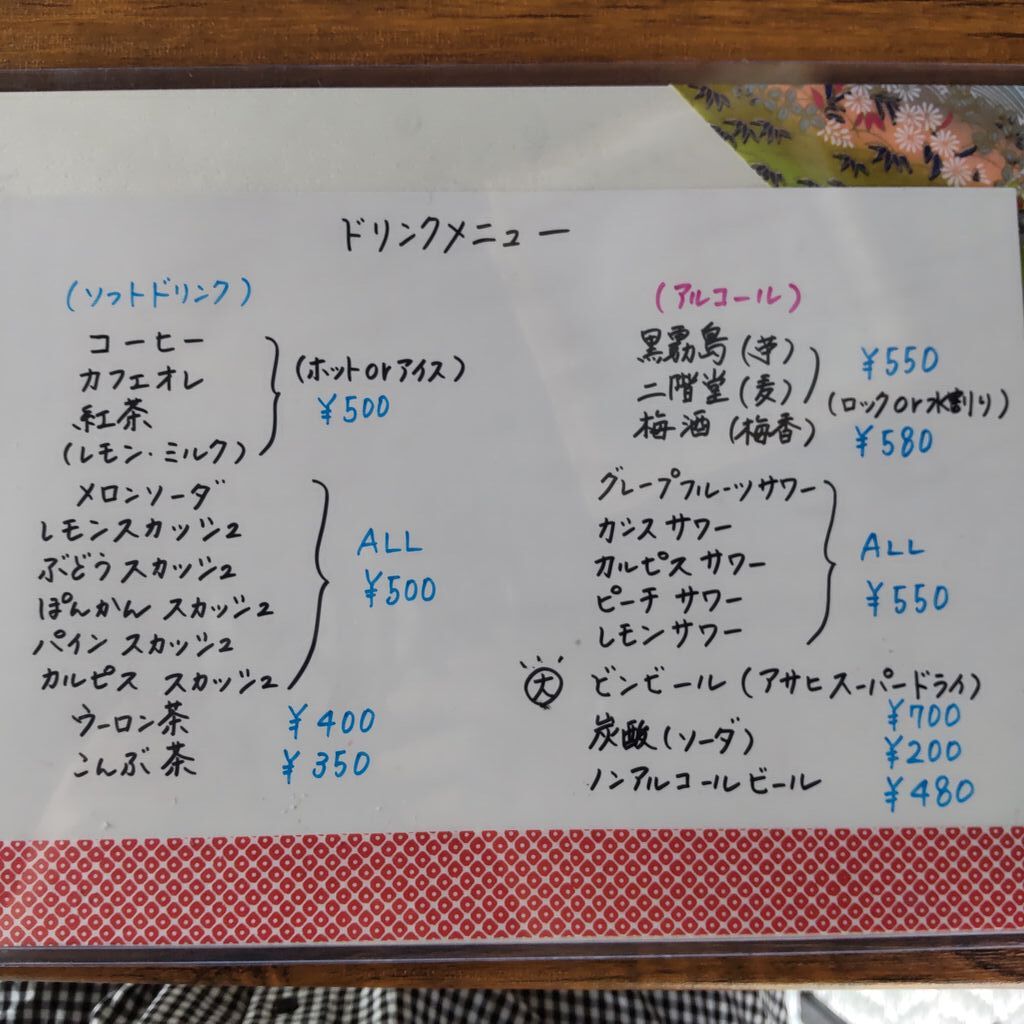 ドリンクメニュー
(ソフトドリンク)
コーヒー
カフェオレ
紅茶
(レモン・ミルク)
(ホットorアイス)
¥500
メロンソーダ
レモンスカッシュ
ぶどうスカッシュ
ぽんかんスカッシュ
パインスカッシュ
カルピススカッシュ
ALL
¥500
ウーロン茶 ¥400
こんぶ茶 ¥350
(アルコール)
黒霧島(芋)
二階堂(麦)
¥550
(ロックor水割り)
梅酒(梅香) ¥580
グレープフルーツサワー
カシスサワー
カルピスサワー
ピーチサワー
レモンサワー
ALL
¥550
大 ビンビール(アサヒスーパードライ)
¥700
炭酸(ソーダ) ¥200
ノンアルコールビール ¥480